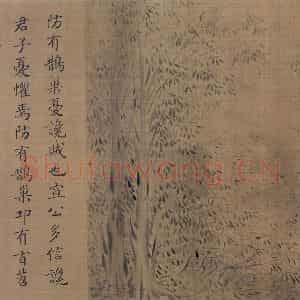 防有鵲巢憂讒賊也宣公多信讒
君子憂懼焉防有鵲巢卭有旨苕
Shufawang.CN